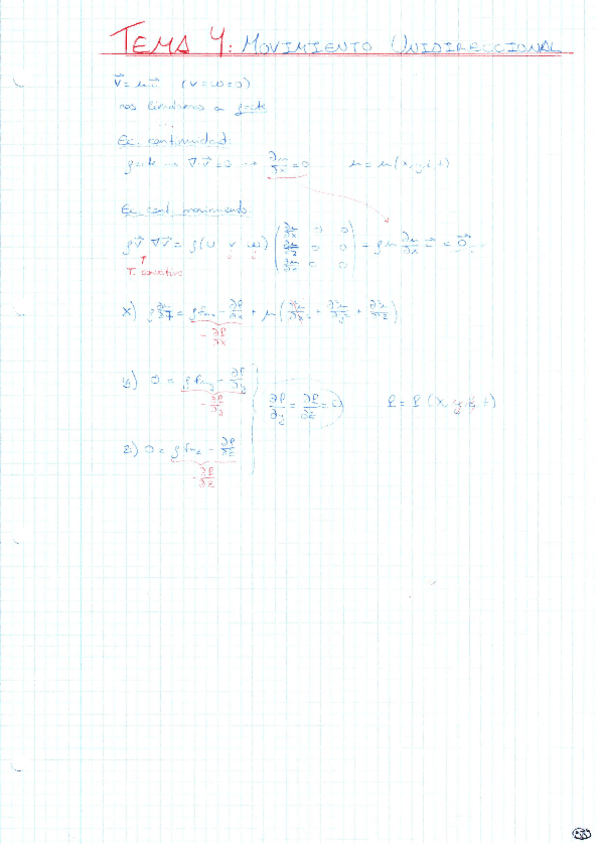 TEMA 4: MOVIMIENTO UNIDIRECCIONAL
v⃗ = u i⃗ (v=w=0)
nos limitamos a ρ=cte
Ec. continuidad:
ρ=cte → ∇·v⃗=0 → ∂u/∂x=0 u = u(x,y,z,t)
Ec. cant. movimiento
ρv⃗ ∇v⃗ = ρ(u v w) (∂u/∂x 0 0; ∂u/∂y 0 0; ∂u/∂z 0 0) = ρu ∂u/∂x i⃗ = 0⃗
T. convectivo
x) ρ ∂u/∂t = ρfmx - ∂P/∂x + μ(∂²u/∂x² + ∂²u/∂y² + ∂²u/∂z²)
- ∂P/∂x
y) 0 = ρfmy - ∂P/∂y
- ∂P/∂y
∂P/∂y = ∂P/∂z = 0 P = P(x,y,z,t)
z) 0 = ρfmz - ∂P/∂z
- ∂P/∂z